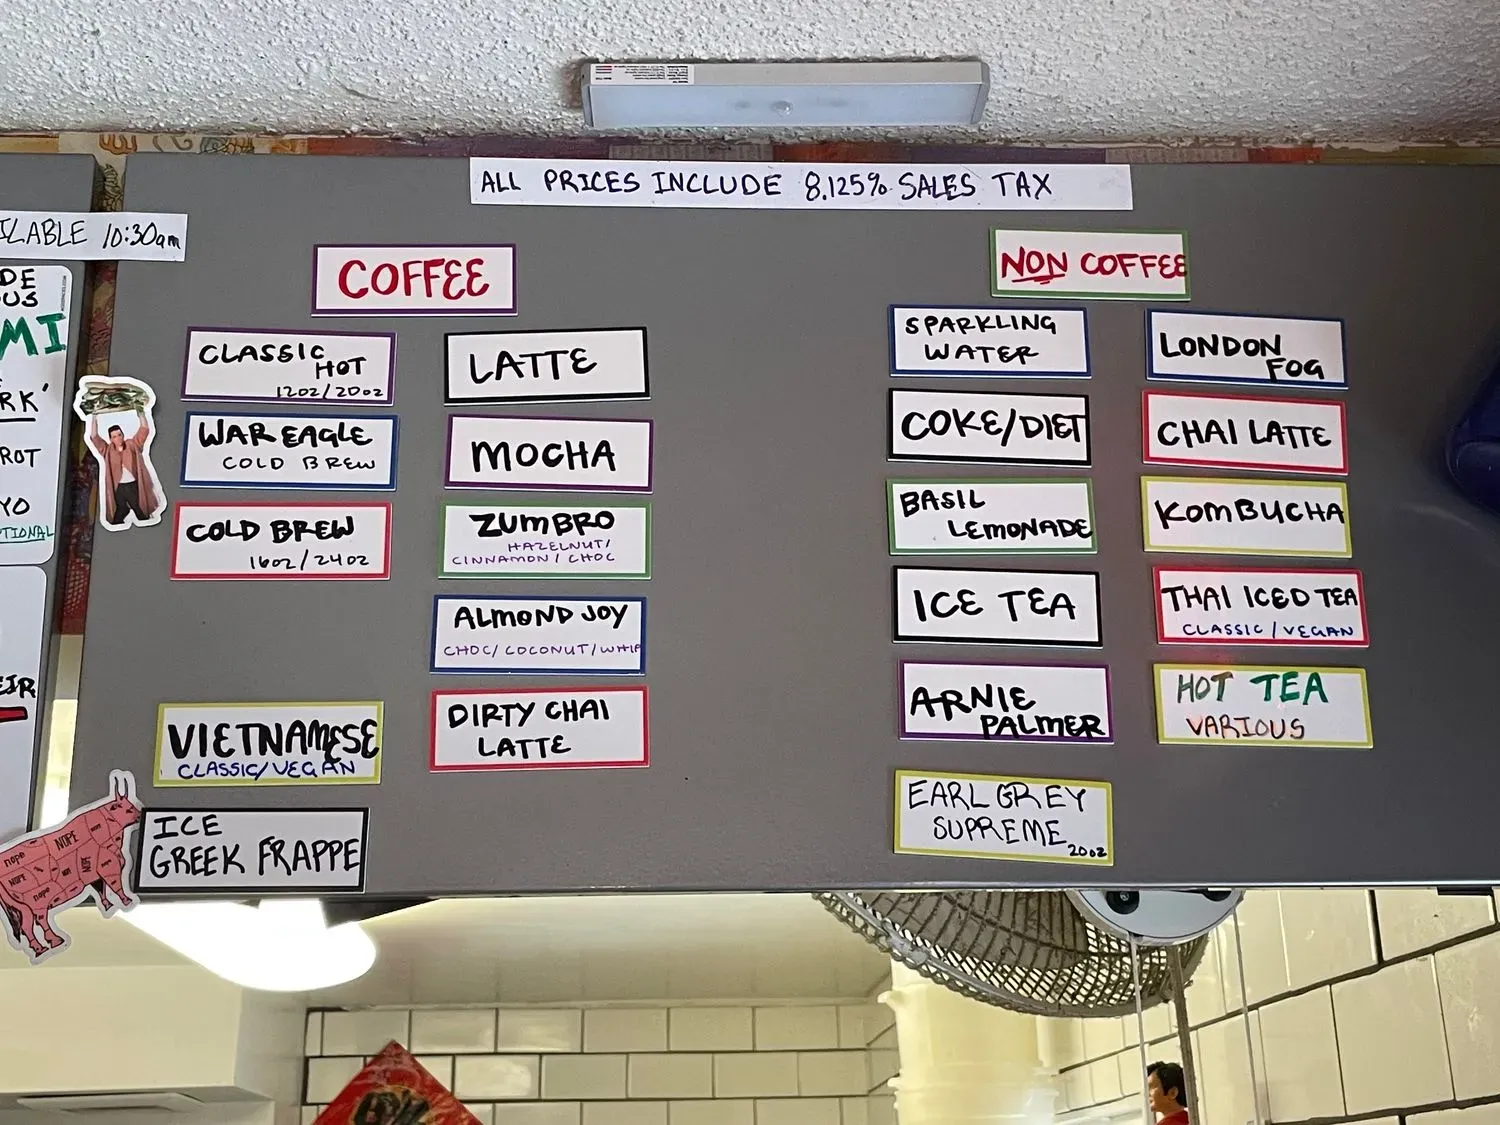 ALL PRICES INCLUDE 8.125% SALES TAX
ILABLE 10:30am
DE
US
MI
RK'
ROT
YO
TIONAL
EIR
COFFEE
CLASSIC
HOT
12oz/20oz
WAR EAGLE
COLD BREW
COLD BREW
16oz/24oz
VIETNAMESE
CLASSIC/VEGAN
ICE
GREEK FRAPPE
LATTE
MOCHA
ZUMBRO
HAZELNUT/
CINNAMON/CHOC
ALMOND JOY
CHOC/COCONUT/WHIP
DIRTY CHAI
LATTE
NON COFFEE
SPARKLING
WATER
COKE/DIET
BASIL
LEMONADE
ICE TEA
ARNIE
PALMER
EARL GREY
SUPREME
20oz
LONDON
FOG
CHAI LATTE
KOMBUCHA
THAI ICED TEA
CLASSIC/VEGAN
HOT TEA
VARIOUS
NOPE
nope
NOPE
nope
NOT